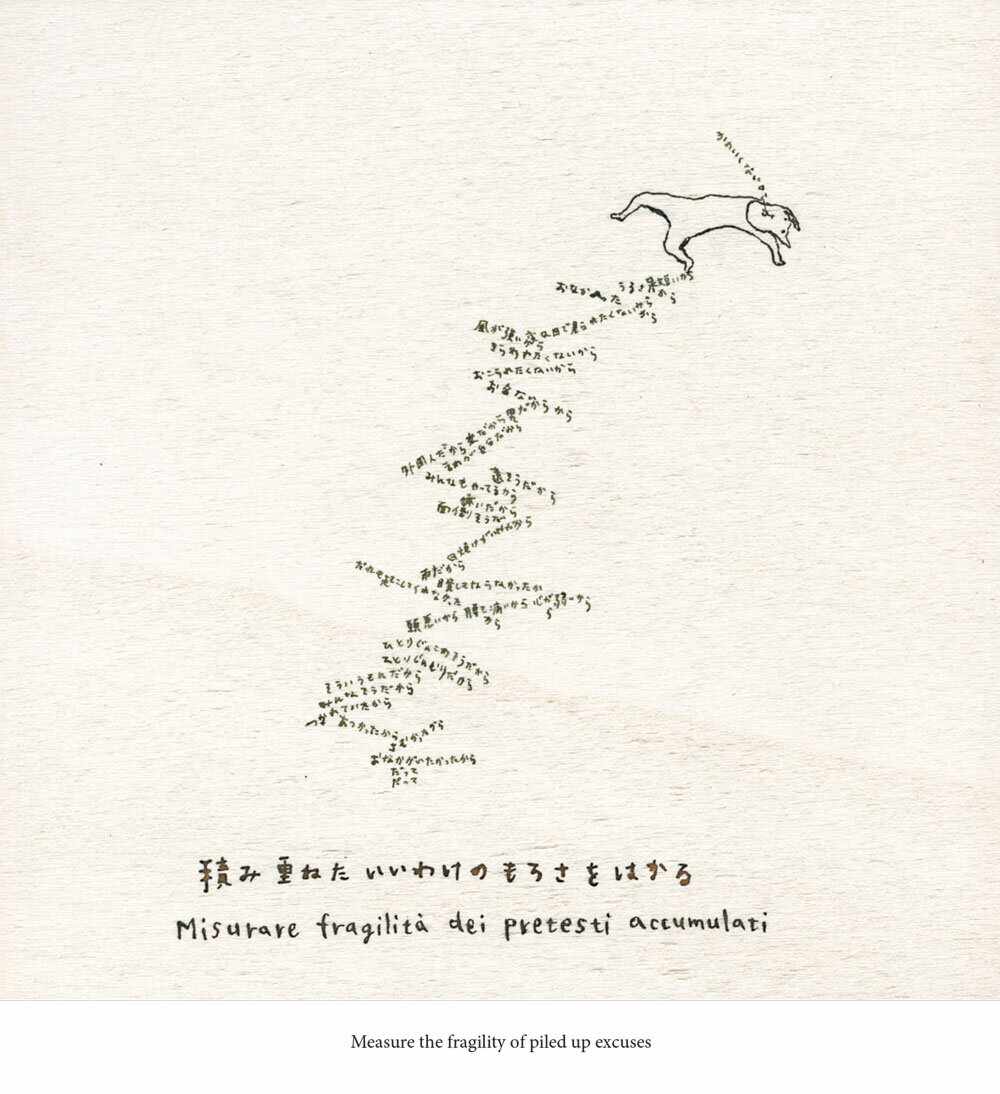 かわいくないから
おなかへった
うるさい
風が強いから
な目で見られたくないから
きらわれたくないから
おこられたくないから
お金ない
から
外国人だから女だから男だから
それが自分だから
みんなもやってるから
遠そうだから
嫌いだから
面倒そうだ
日焼けがいやだから
雨だから
だれも起こしてくれなかった
目覚してならなかったか
頭悪いから 腰も痛いから 心が弱いから
ひとりじめこめそうだから
ひとりじめ
そういうもんだから
みんなそうだから
つかれていたから
あつかったから さむかったから
おなかがいたかったから
だって
だって
積み重ねた いいわけの もろさを はかる
Misurare fragilità dei pretesti accumulati
Measure the fragility of piled up excuses